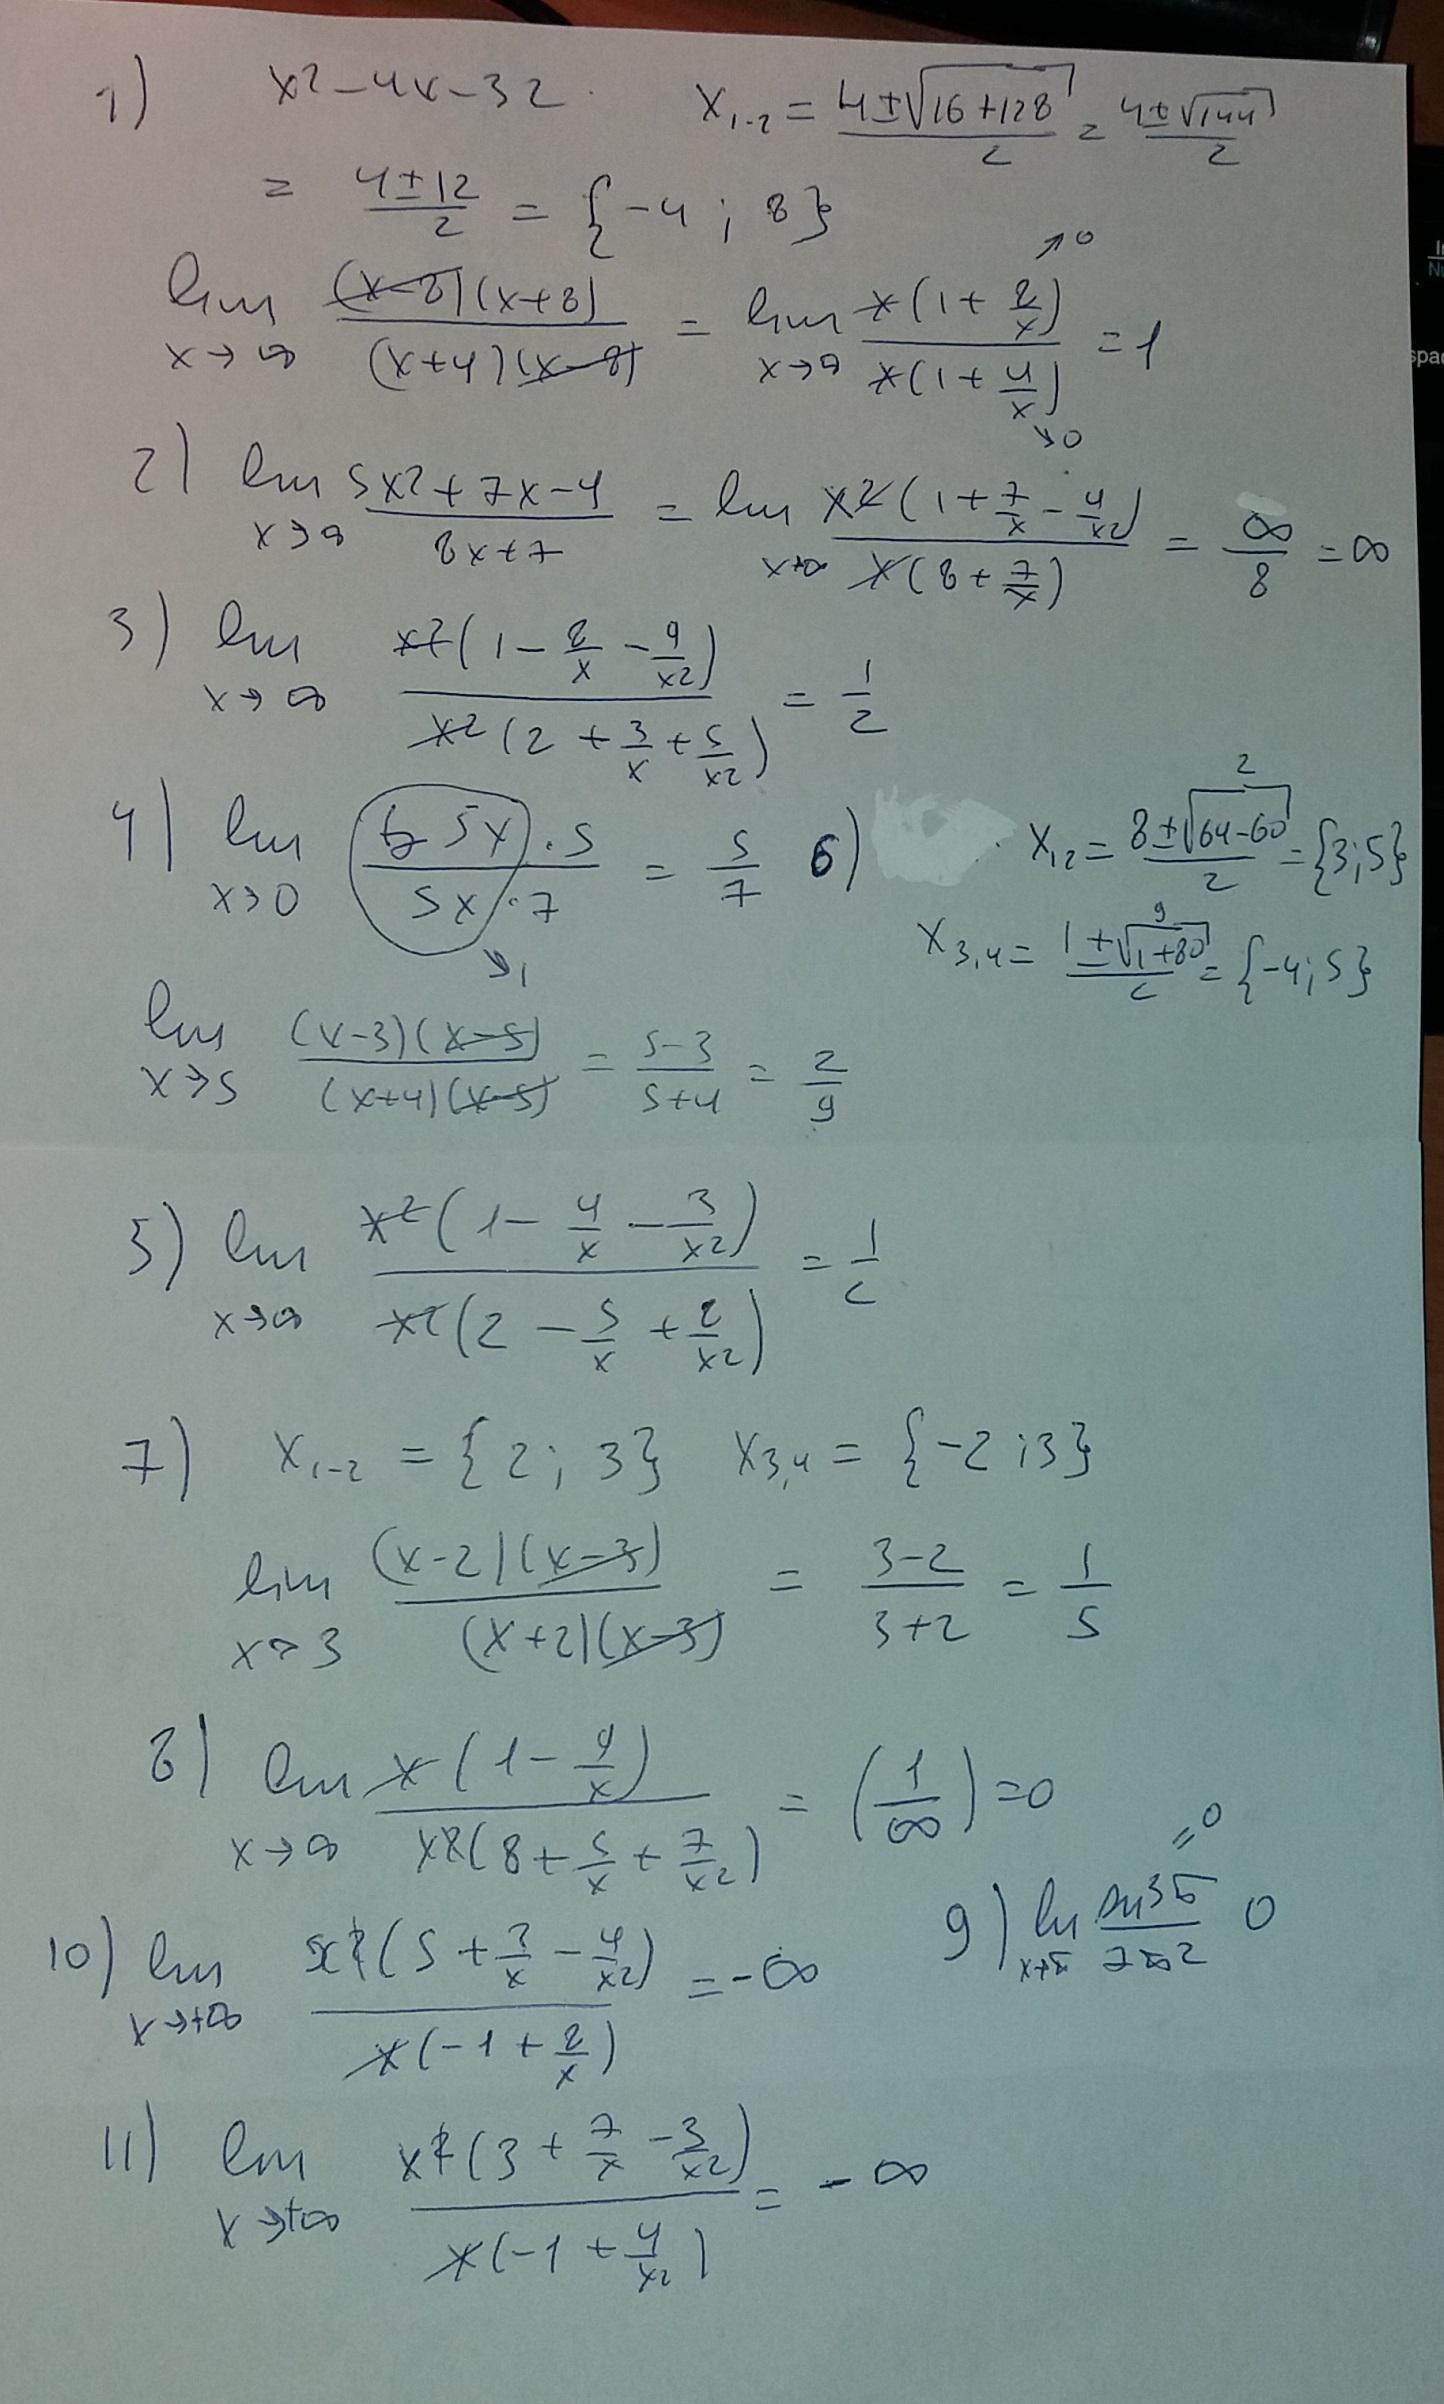 1) x² - 4x - 32. x₁₋₂ = (4 ± √(16 + 128))/2 = (4 ± √144)/2
= (4 ± 12)/2 = {-4; 8}
lim x→∞ ((x-8)(x+8))/((x+4)(x-8)) = lim x→∞ (x(1 + 8/x))/(x(1 + 4/x)) = 1 →0 →0
2) lim x→∞ (5x² + 7x - 4)/(8x + 7) = lim x→∞ (x²(1 + 7/x - 4/x²))/(x(8 + 7/x)) = ∞/8 = ∞
3) lim x→∞ (x²(1 - 8/x - 9/x²))/(x²(2 + 3/x + 5/x²)) = 1/2
4) lim x→0 (tg 5x · 5)/(5x · 7) = 5/7 →1
6) x₁,₂ = (8 ± √(64-60))/2 = {3; 5} 2
x₃,₄ = (1 ± √(1+80))/2 = {-4; 5} 9
lim x→5 ((x-3)(x-5))/((x+4)(x-5)) = (5-3)/(5+4) = 2/9
5) lim x→∞ (x²(1 - 4/x - 3/x²))/(x²(2 - 5/x + 2/x²)) = 1/2
7) x₁₋₂ = {2; 3} x₃,₄ = {-2; 3}
lim x→3 ((x-2)(x-3))/((x+2)(x-3)) = (3-2)/(3+2) = 1/5
8) lim x→∞ (x(1 - 9/x))/(x²(8 + 5/x + 7/x²)) = (1/∞) = 0
9) lim x→π (sin 3π)/(7π²) 0 =0
10) lim x→+∞ (x²(5 + 3/x - 4/x²))/(x(-1 + 2/x)) = -∞
11) lim x→+∞ (x²(3 + 7/x - 3/x²))/(x(-1 + 4/x²)) = -∞